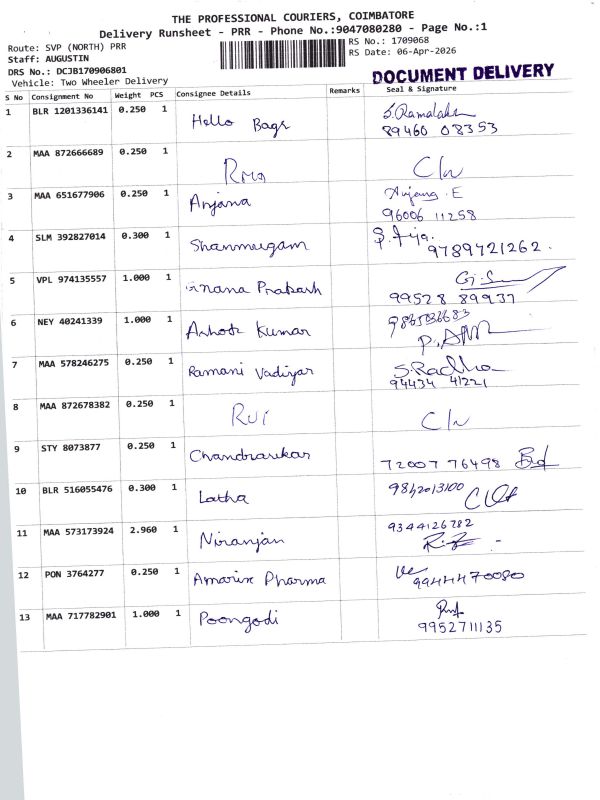 THE PROFESSIONAL COURIERS, COIMBATORE
Delivery Runsheet - PRR - Phone No.:9047080280 - Page No.:1
Route: SVP (NORTH) PRR
RS No.: 1709068
Staff: AUGUSTIN
RS Date: 06-Apr-2026
DRS No.: DCJB170906801
DOCUMENT DELIVERY
Vehicle: Two Wheeler Delivery
S No Consignment No Weight PCS Consignee Details Remarks Seal & Signature
1 BLR 1201336141 0.250 1 Hello Bags
89460 08353
2 MAA 872666689 0.250 1
3 MAA 651677906 0.250 1 Anjana Anjana E
96006 11258
4 SLM 392827014 0.300 1 Shanmugam
9789721262.
5 VPL 974135557 1.000 1 Gnana Prakash
99528 89937
6 NEY 40241339 1.000 1 Ashok Kumar
7 MAA 578246275 0.250 1 Ramani Vadiyar S.Radha
94434 41221
8 MAA 872678382 0.250 1
9 STY 8073877 0.250 1 Chandrasekar
72007 76498
10 BLR 516055476 0.300 1 Latha
11 MAA 573173924 2.960 1 Niranjan
9344126282
12 PON 3764277 0.250 1 Amarix Pharma
9944470080
13 MAA 717782901 1.000 1 Poongodi
9952711135